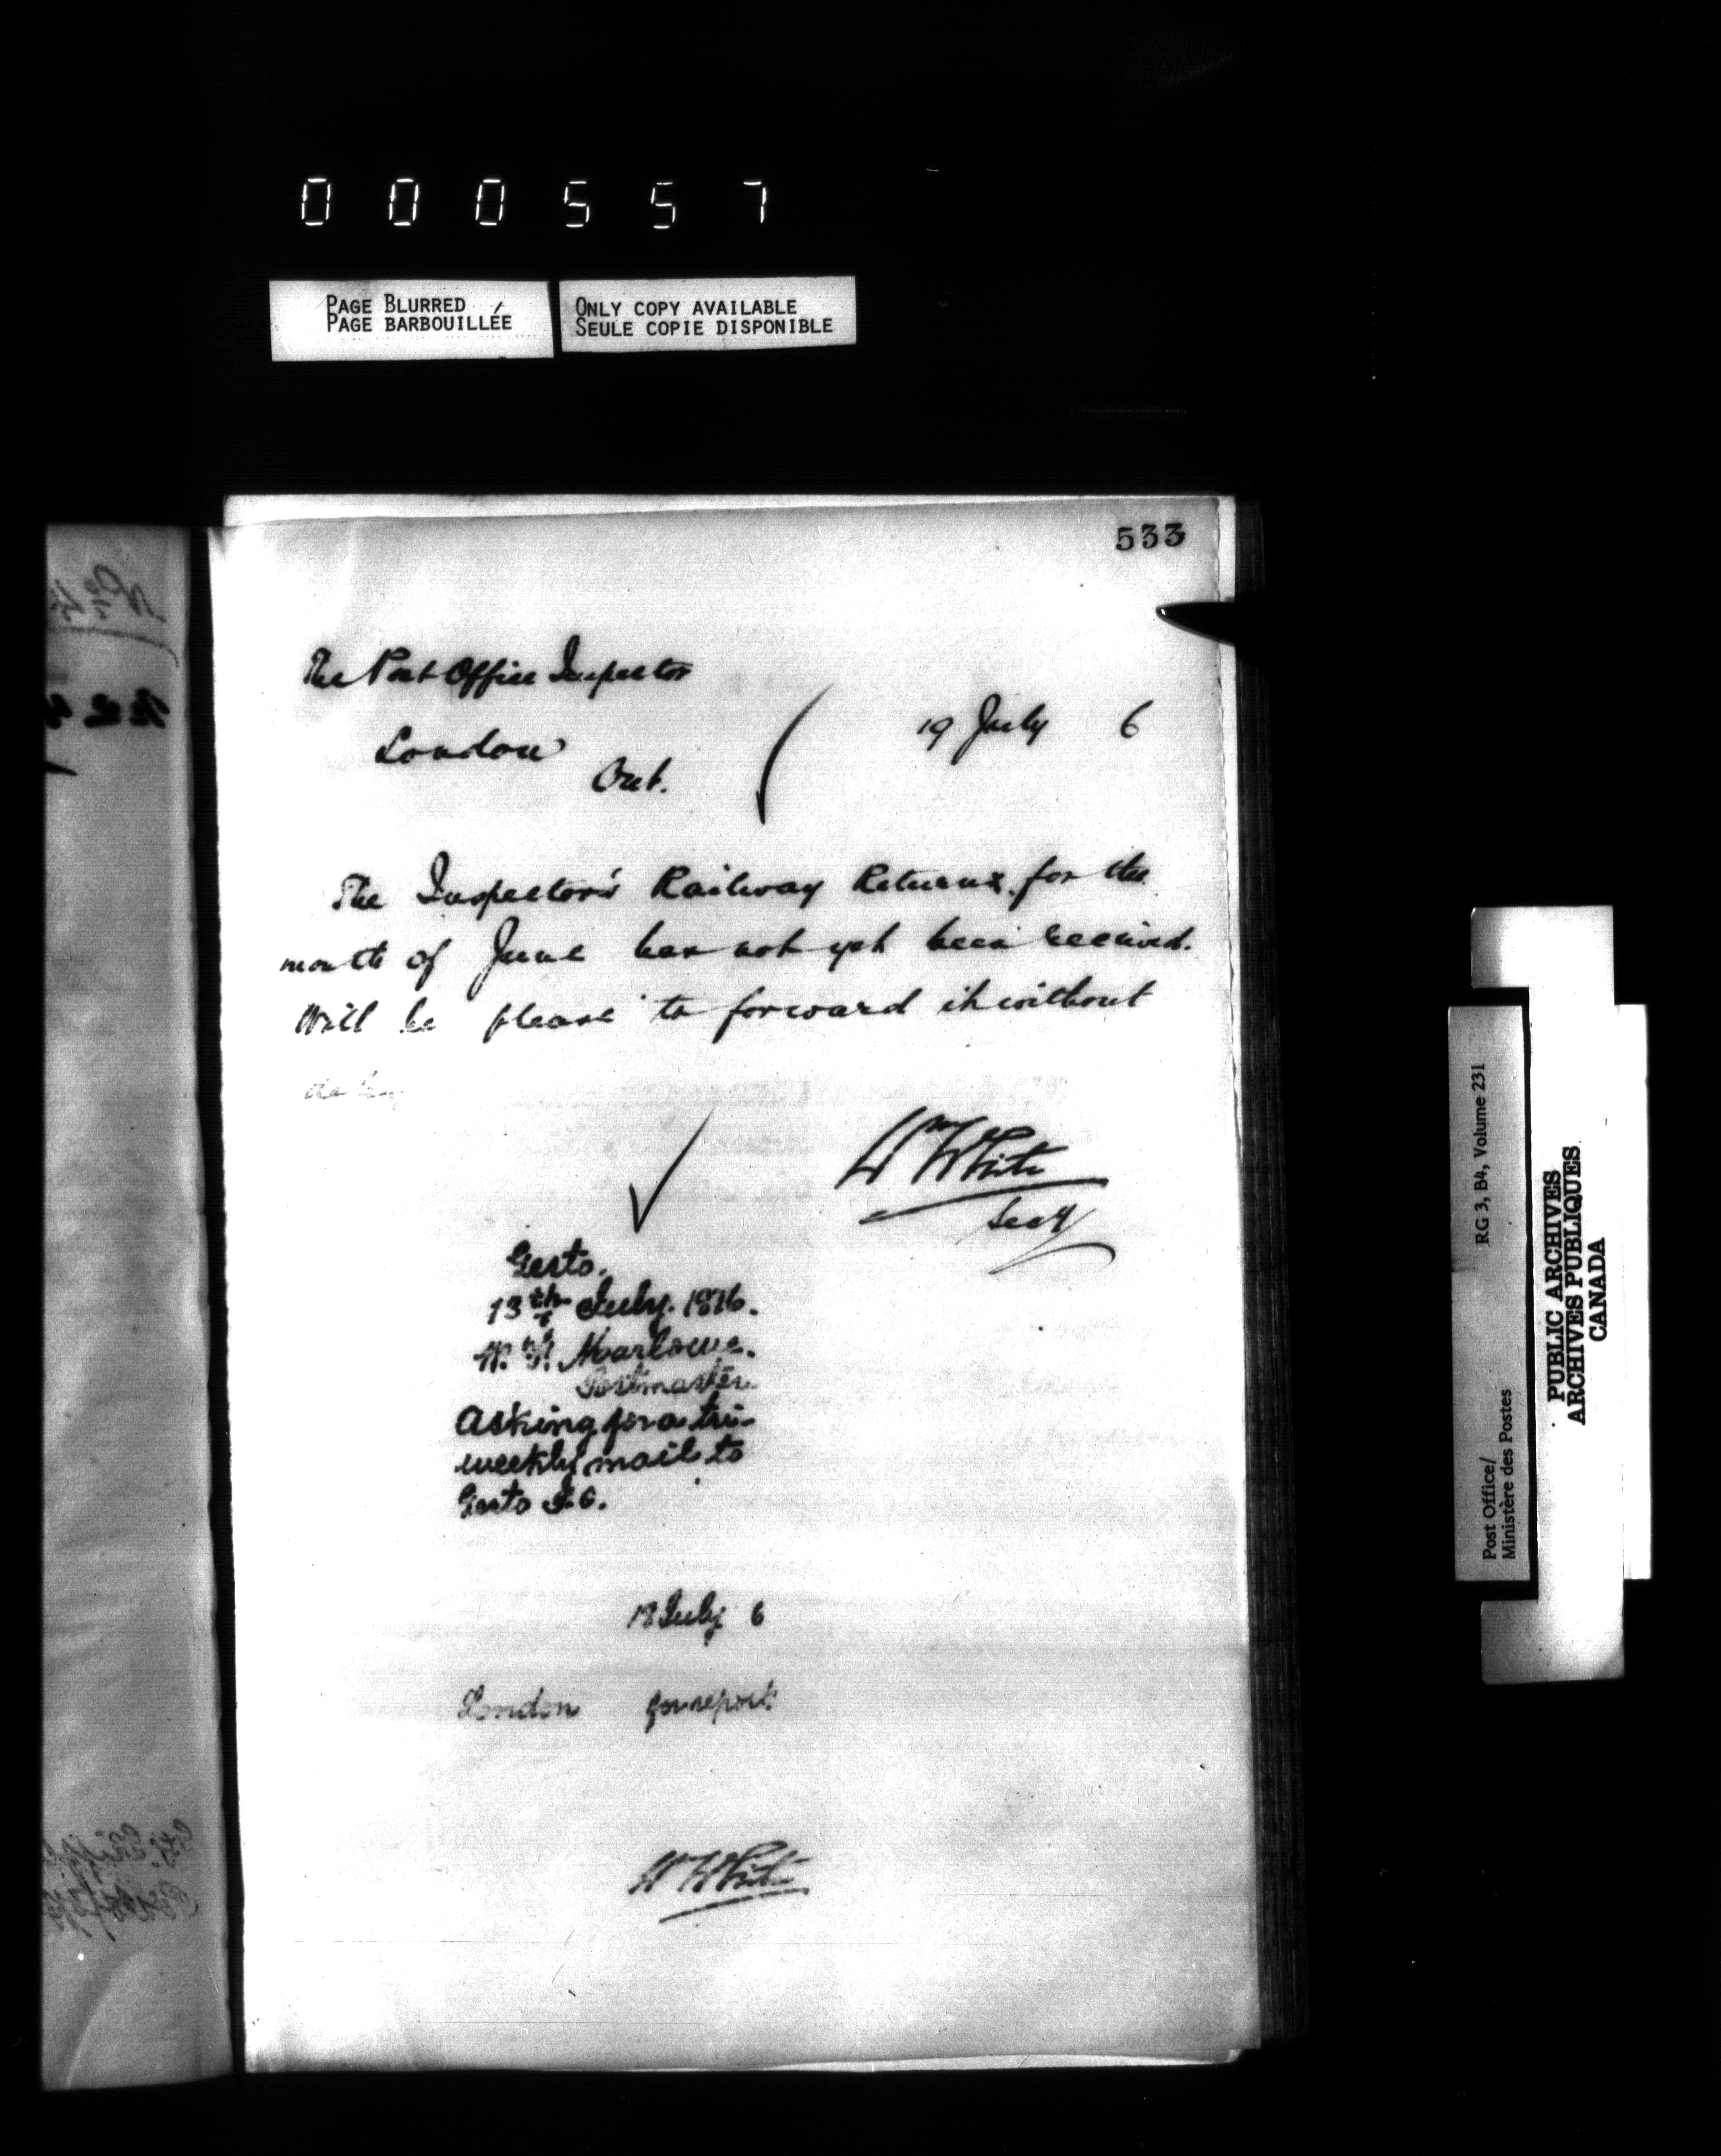 000557
PAGE BLURRED
PAGE BARBOUILLÉE
ONLY COPY AVAILABLE
SEULE COPIE DISPONIBLE
533
The Post Office Inspector
London
Ont.
19 July 6
The Inspector's Railway Returns for the
month of June has not yet been received.
Will he please to forward it without
delay
Wm White
Secy
Gesto.
13th July. 1876.
Marlowe.
Postmaster.
Asking for a tri-
weekly mail to
Gesto P.O.
18 July 6
London for report
Wm White
RG 3, B4, Volume 231
Post Office/
Ministère des Postes
PUBLIC ARCHIVES
ARCHIVES PUBLIQUES
CANADA